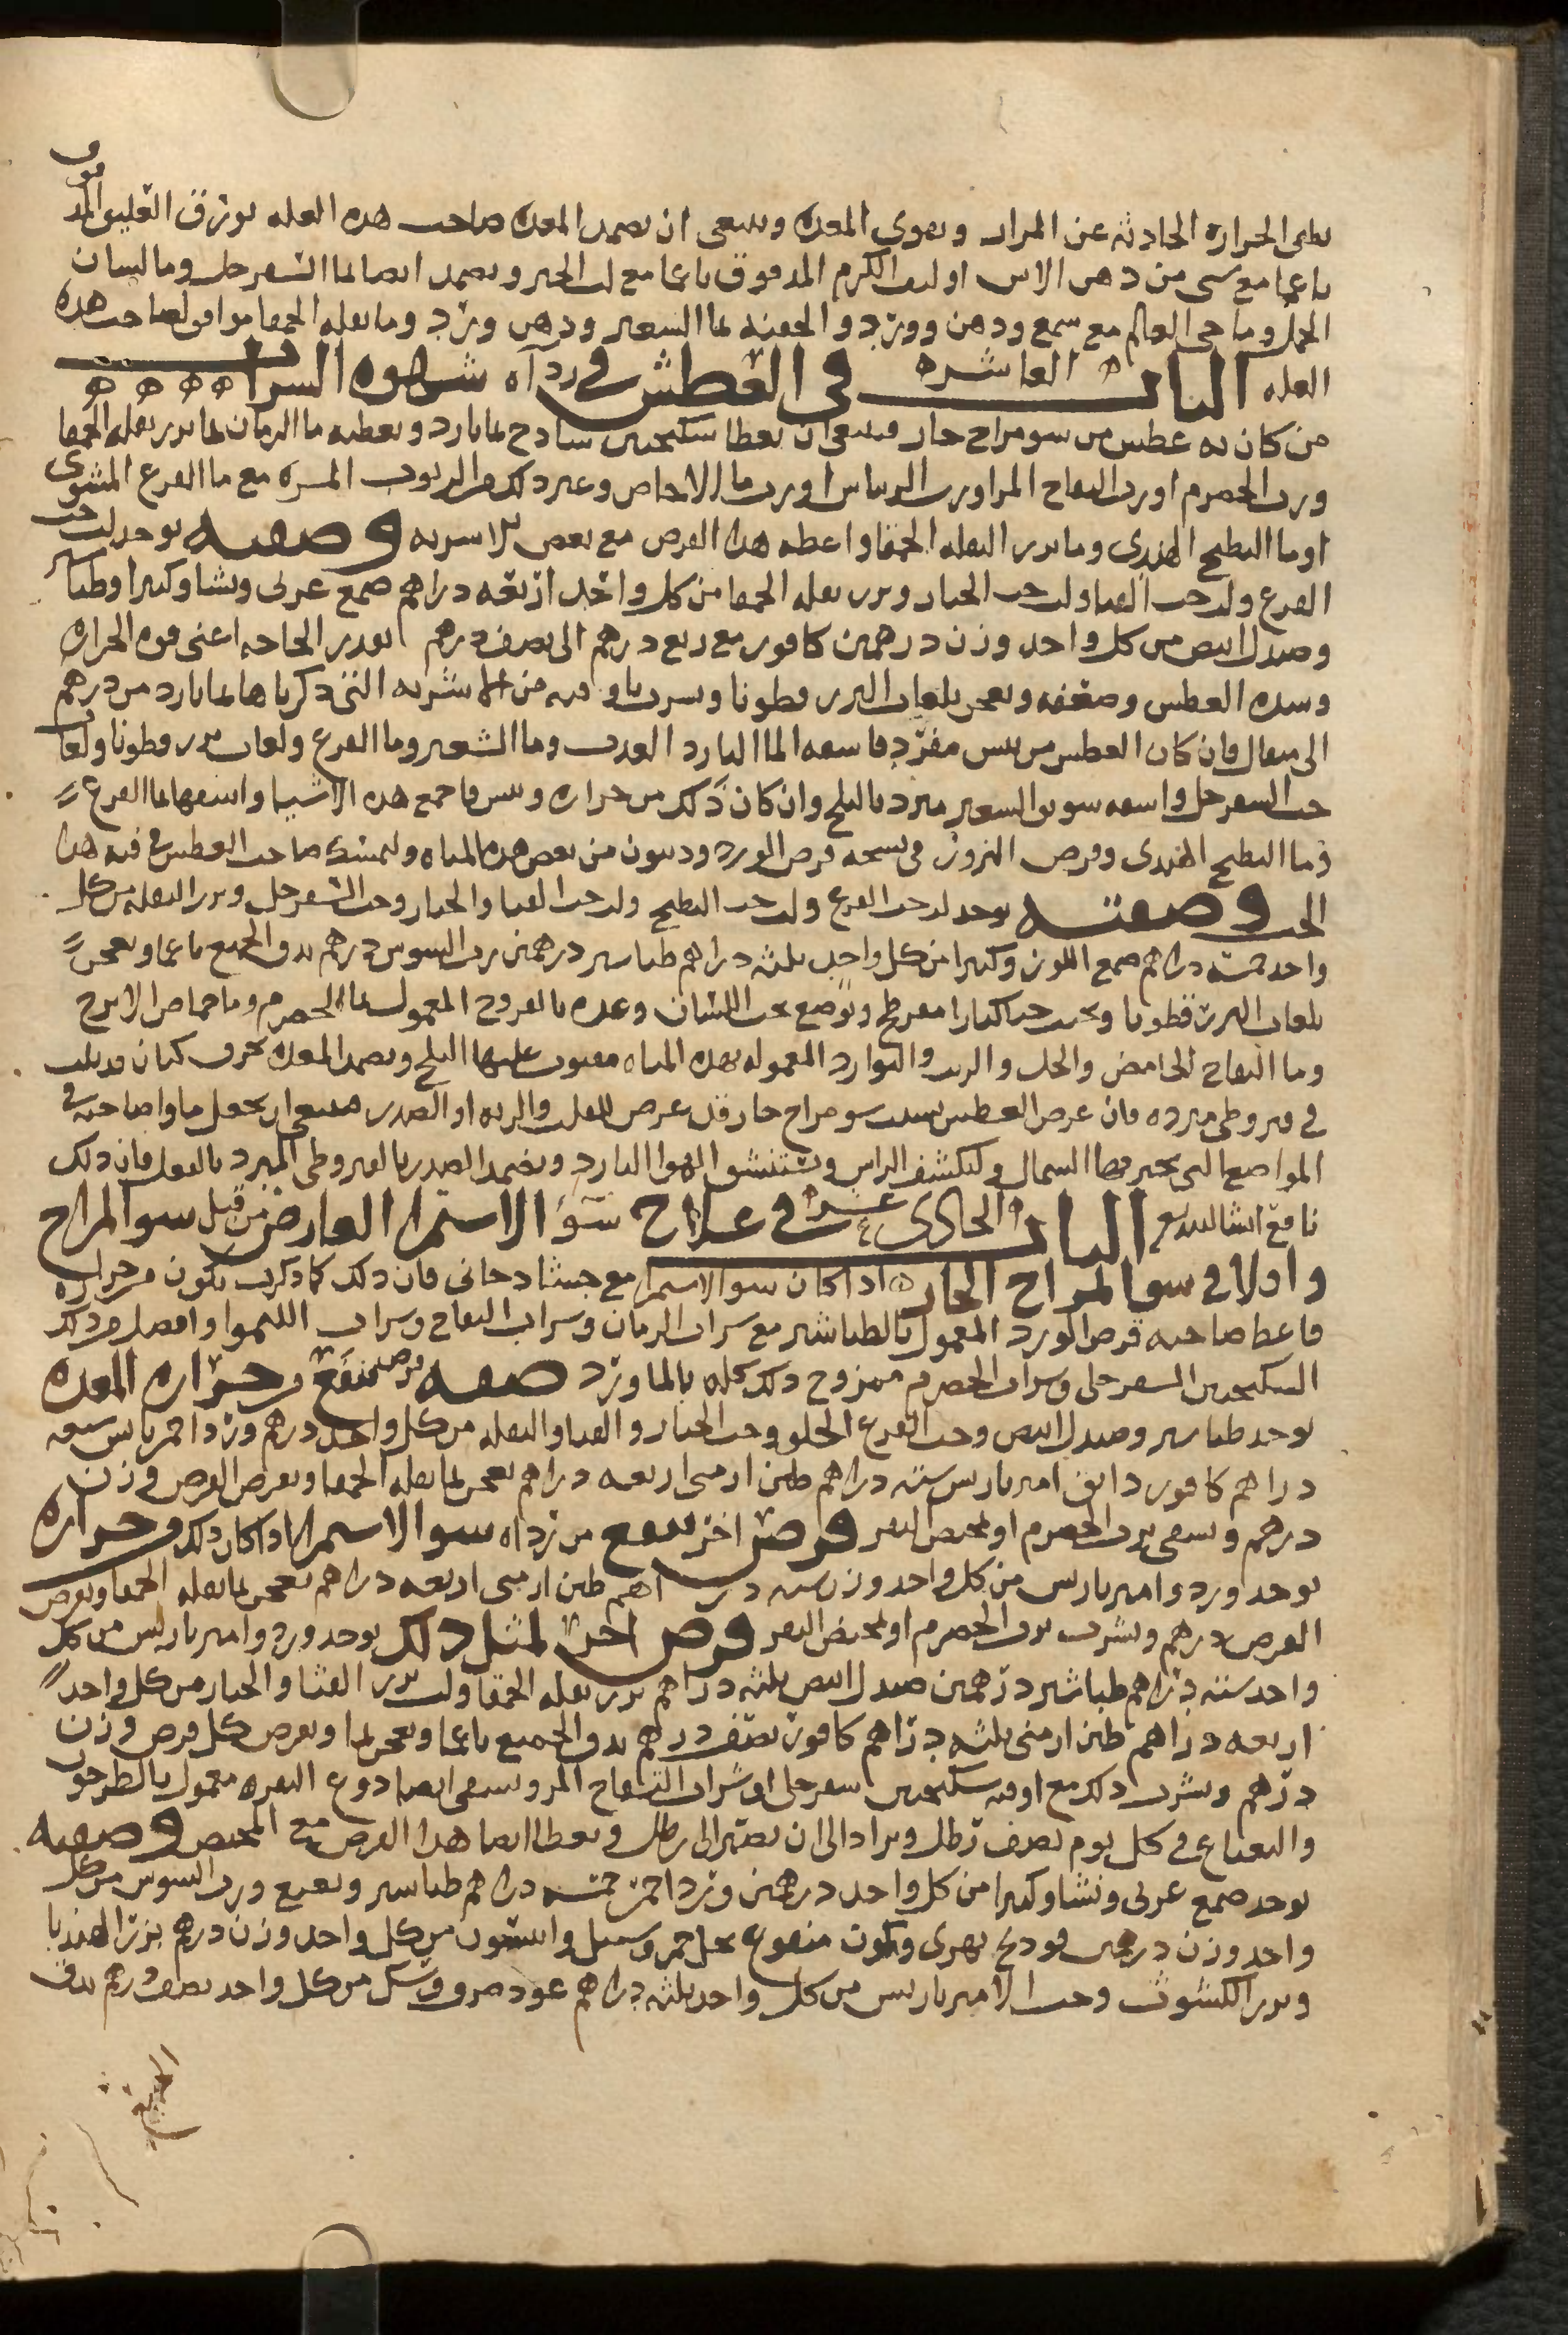 يطفى الحرارة الحادثه عن المرار ويقوى المعدة وينبغى ان يضمد المعدة صاحب هذه العله بورق العليق المدقوق
ناعما مع شى من دهن الاس او ليف الكرم المدقوق ناعما مع لب الخبز ويضمد ايضا بما السفرجل وما لسان
الحمل وما حى العالم مع شمع ودهن وورد والحقنه بما الشعير ودهن ورد وما بقله الحمقا موافق لصاحب هذه
العله الباب العاشر فى العطش فى رداه شهوه الشراب
من كان به عطش من سو مزاج حار فينبغى ان يعطا سكنجبين ساذج بما بارد ويعطيه ما الرمان بما بزر بقله الحمقا
ورب الحصرم او رب التفاح المر او رب الريباس او رب ما الاجاص وغير ذلك من الربوب المزه مع ما القرع المشوى
او ما البطيخ الهندى وما بزر البقله الحمقا واعطه هذا القرص مع بعض الاشربه وصفته يوخذ لب حب
القرع ولب حب القثا ولب حب الخيار وبزر بقله الحمقا من كل واحد اربعه دراهم صمغ عربى ونشا وكثيرا وطباشير
وصندل ابيض من كل واحد وزن درهمين كافور مع ربع درهم الى نصف درهم بقدر الحاجه اعنى قوه الحراره
وشده العطش وضعفه ويعجن بلعاب البزر قطونا ويشرب باوقيه من الاشربه التى ذكرناها بما بارد من درهم
الى مثقال فان كان العطش من يبس مفرد فاسقه الما البارد العذب وما الشعير وما القرع ولعاب بزر قطونا ولعاب
حب السفرجل واسقه سويق الشعير مبرد بالثلج وان كان ذلك من حراره ويبس فاجمع هذه الاشيا واسقها بما القرع
وما البطيخ الهندى وقرص البزور فى نسخه قرص الورد وديون من بعض هذه المياه وليمسك صاحب العطش فى فيه هذا
الحب وصفته يوخذ لب حب القرع ولب حب البطيخ ولب حب القثا والخيار وحب السفرجل وبزر البقله من كل
واحد خمسه دراهم صمغ اللوز وكثيرا من كل واحد ثلثه دراهم طباشير درهمين رب السوس درهم يدق الجميع ناعما ويعجن
بلعاب البزر قطونا ويحبب حبا كبارا مفرطح ويوضع تحت اللسان وغذه بالفروج المعمول بما الحصرم وما حماض الاترج
وما التفاح الحامض والخل والزيت والبوارد المعموله بهذه المياه مصبوب عليها الثلج ويضمد المعده بخرق كتان قد بلت
فى قيروطى مبرده فان عرض العطش بسبب سو مزاج حار قد عرض للقلب والريه او الصدر فينبغى ان يجعل ماوا صاحبه فى
المواضع التى يخترقها الشمال وليكشف الراس ويستنشق الهوا البارد ويضمد الصدر بالقيروطى المبرد بالفعل فان ذلك
نافع انشا الله تع الباب الحادى عشر فى علاج سو الاستمرا العارض من قبل سو المزاج
واولا فى سو المزاج الحار اذا كان سو الاستمرا مع جشا دخانى فان ذلك كما ذكرت يكون من حراره
فاعط صاحبه قرص الورد المعمول بالطباشير مع شراب الرمان وشراب التفاح وشراب الليموا وافضل من ذلك
السكنجبين السفرجلى وشراب الحصرم ممزوج ذلك كله بالماورد صفه قرص ينفع من حراره المعده
يوخذ طباشير وصندل ابيض وحب القرع الحلو وحب الخيار والقثا والبقله من كل واحد درهم ورد احمر يابس سبعه
دراهم كافور دانق امير باريس سته دراهم طين ارمنى اربعه دراهم يعجن بما بقله الحمقا ويقرص القرص وزن
درهم ويسقى برب الحصرم او بمخيض البقر قرص اخر ينفع من رداه سو الاستمرا اذا كان ذلك من حراره
يوخذ ورد وامير باريس من كل واحد وزن سته دراهم طين ارمنى اربعه دراهم يعجن بما بقله الحمقا ويقرص
القرص درهم ويشرب برب الحصرم او بمخيض البقر قرص اخر لمثل ذلك يوخذ ورد وامير باريس من كل
واحد سته دراهم طباشير درهمين صندل ابيض ثلثه دراهم بزر بقله الحمقا ولب بزر القثا والخيار من كل واحد
اربعه دراهم طين ارمنى ثلثه دراهم كافور نصف درهم يدق الجميع ناعما ويعجن بما ويقرص كل قرص وزن
درهم ويشرب ذلك مع اوقيه سكنجبين سفرجلى او شراب التفاح المر ويسقى ايضا دوغ البقره معمول بالطرخون
والنعناع فى كل يوم نصف رطل ويزاد الى ان يصير الى رطل ويعطا ايضا هذا القرص مع المخيض وصفته
يوخذ صمغ عربى ونشا وكثيرا من كل واحد درهمين ورد احمر خمسه دراهم طباشير ونعنع ورب السوس من كل
واحد وزن درهمين فودنج نهرى وكمون منقوع بخل خمر وسنبل وانيسون من كل واحد وزن درهم بزر الهندبا
وبزر الكشوث وحب الامير باريس من كل واحد ثلثه دراهم عود صرف وسك من كل واحد نصف درهم يدق
الجميع